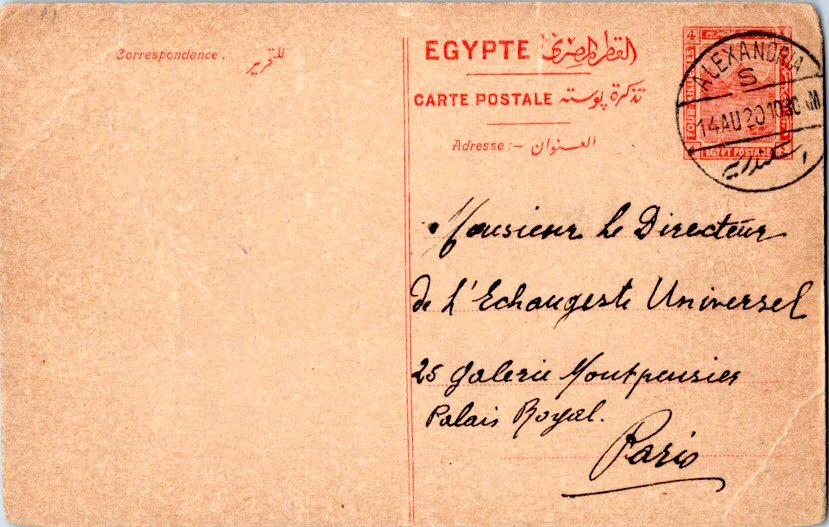 Correspondance .
للتحرير
EGYPTE القطر المصرى
CARTE POSTALE تذكرة پوسته
Adresse :- العنوان
ALEXANDRIA
S
14 AU 20 10 30 AM
اسكندرية
FOUR
EGYPT POSTAGE
Monsieur le Directeur
de L'Echangeste Universel
25 Galerie Montpensier
Palais Royal.
Paris